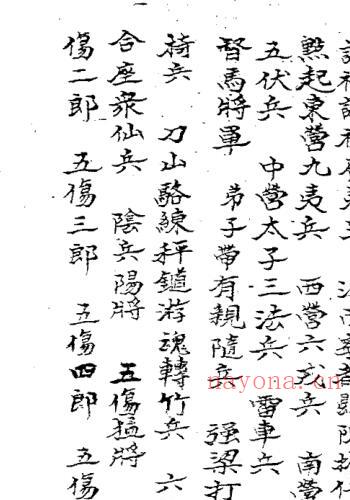 點起東營九夷兵 西營六戎兵 南營
五伏兵 中營太子三法兵 雷車兵
督馬將軍 弟子帶有親隨兵 強梁打
椅兵 刀山駱練秤鎚游魂轉竹兵 六
合座衆仙兵 陰兵陽將 五傷猛將
傷二郎 五傷三郎 五傷四郎 五傷
nayona.cn